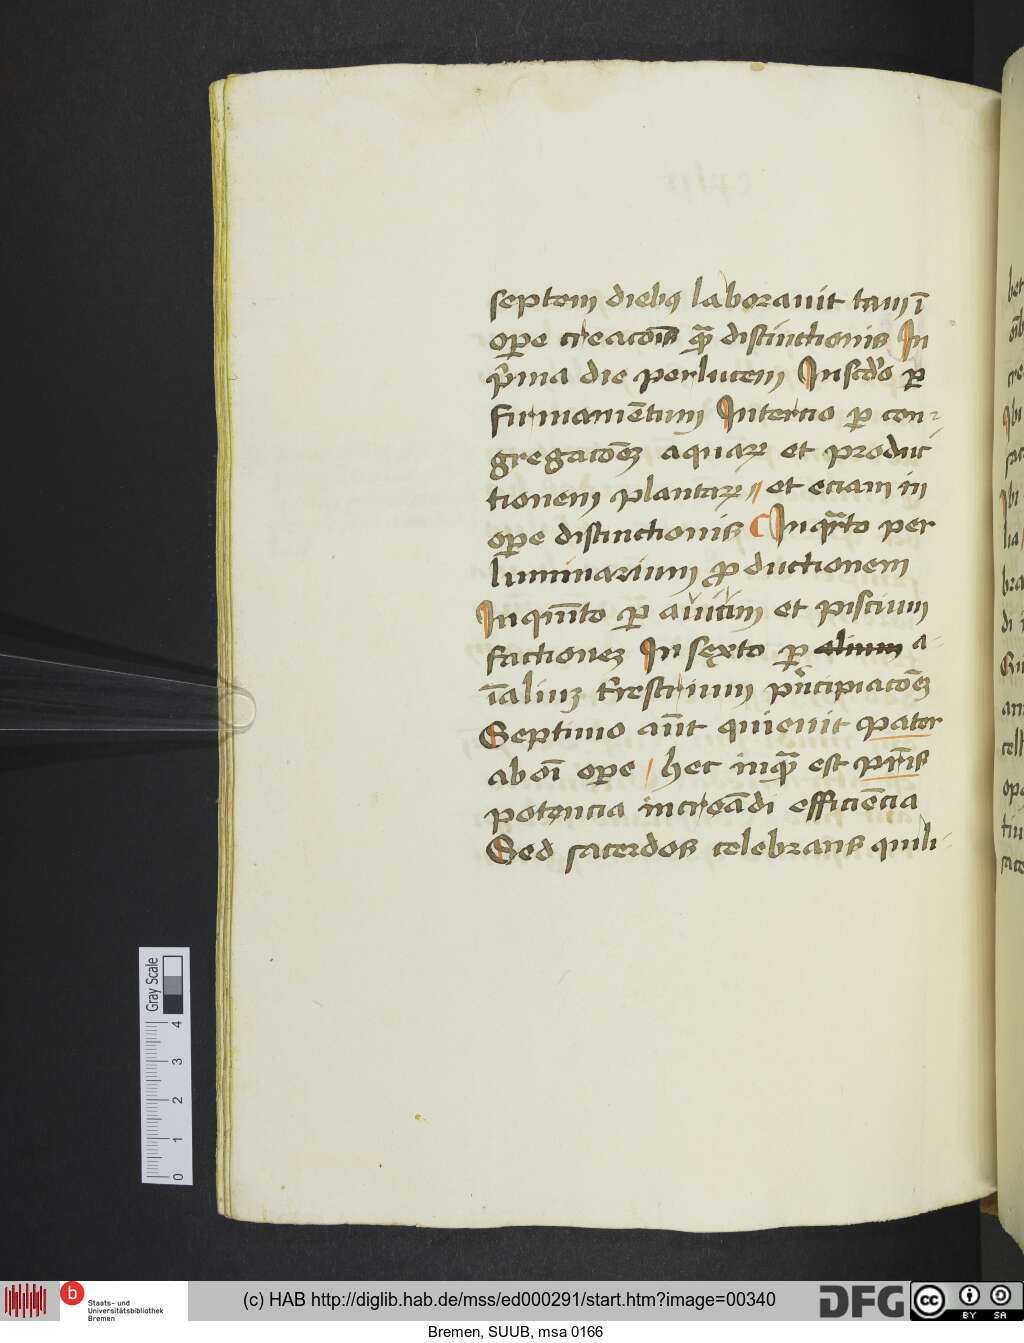 septem diebꝯ laborauit tam ī
oꝑe creacōis qᷓ distinctionis In
pͥma die per lucem In scd̓o ꝑ
firmamētum In tercio ꝑ con-
gregacōeꝫ aquaꝝ et produc
tionem plantaꝝ // et eciam in
oꝑe distinctionis ¶ In qᷓrto per
luminarium ꝓductionem
In quīto ꝑ et piscium
factioneꝫ In sexto ꝑ a-
īaliuꝫ t̄restrium pͥncipiacōeꝫ
Septimo aūt quieuit pater
ab oī oꝑe / hec inqᷓ est pr̄is
potencia in creādi efficiēcia
Sed sacerdos celebrans quili-
Gray Scale
4
3
2
1
0
b
Staats- und
Universitätsbibliothek
Bremen
(c) HAB http://diglib.hab.de/mss/ed000291/start.htm?image=00340
DFG
cc
BY SA
Bremen, SUUB, msa 0166